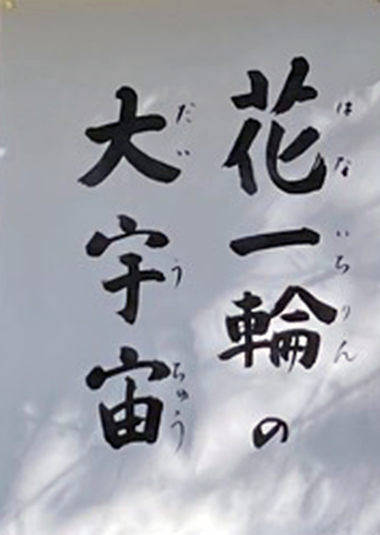 花一輪の
はないちりん
大宇宙
だいうちゅう